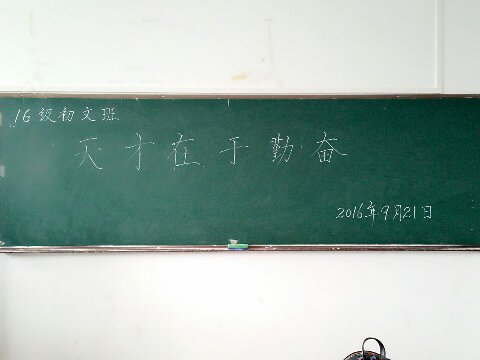 16级初文班
天才在于勤奋
2016年9月21日